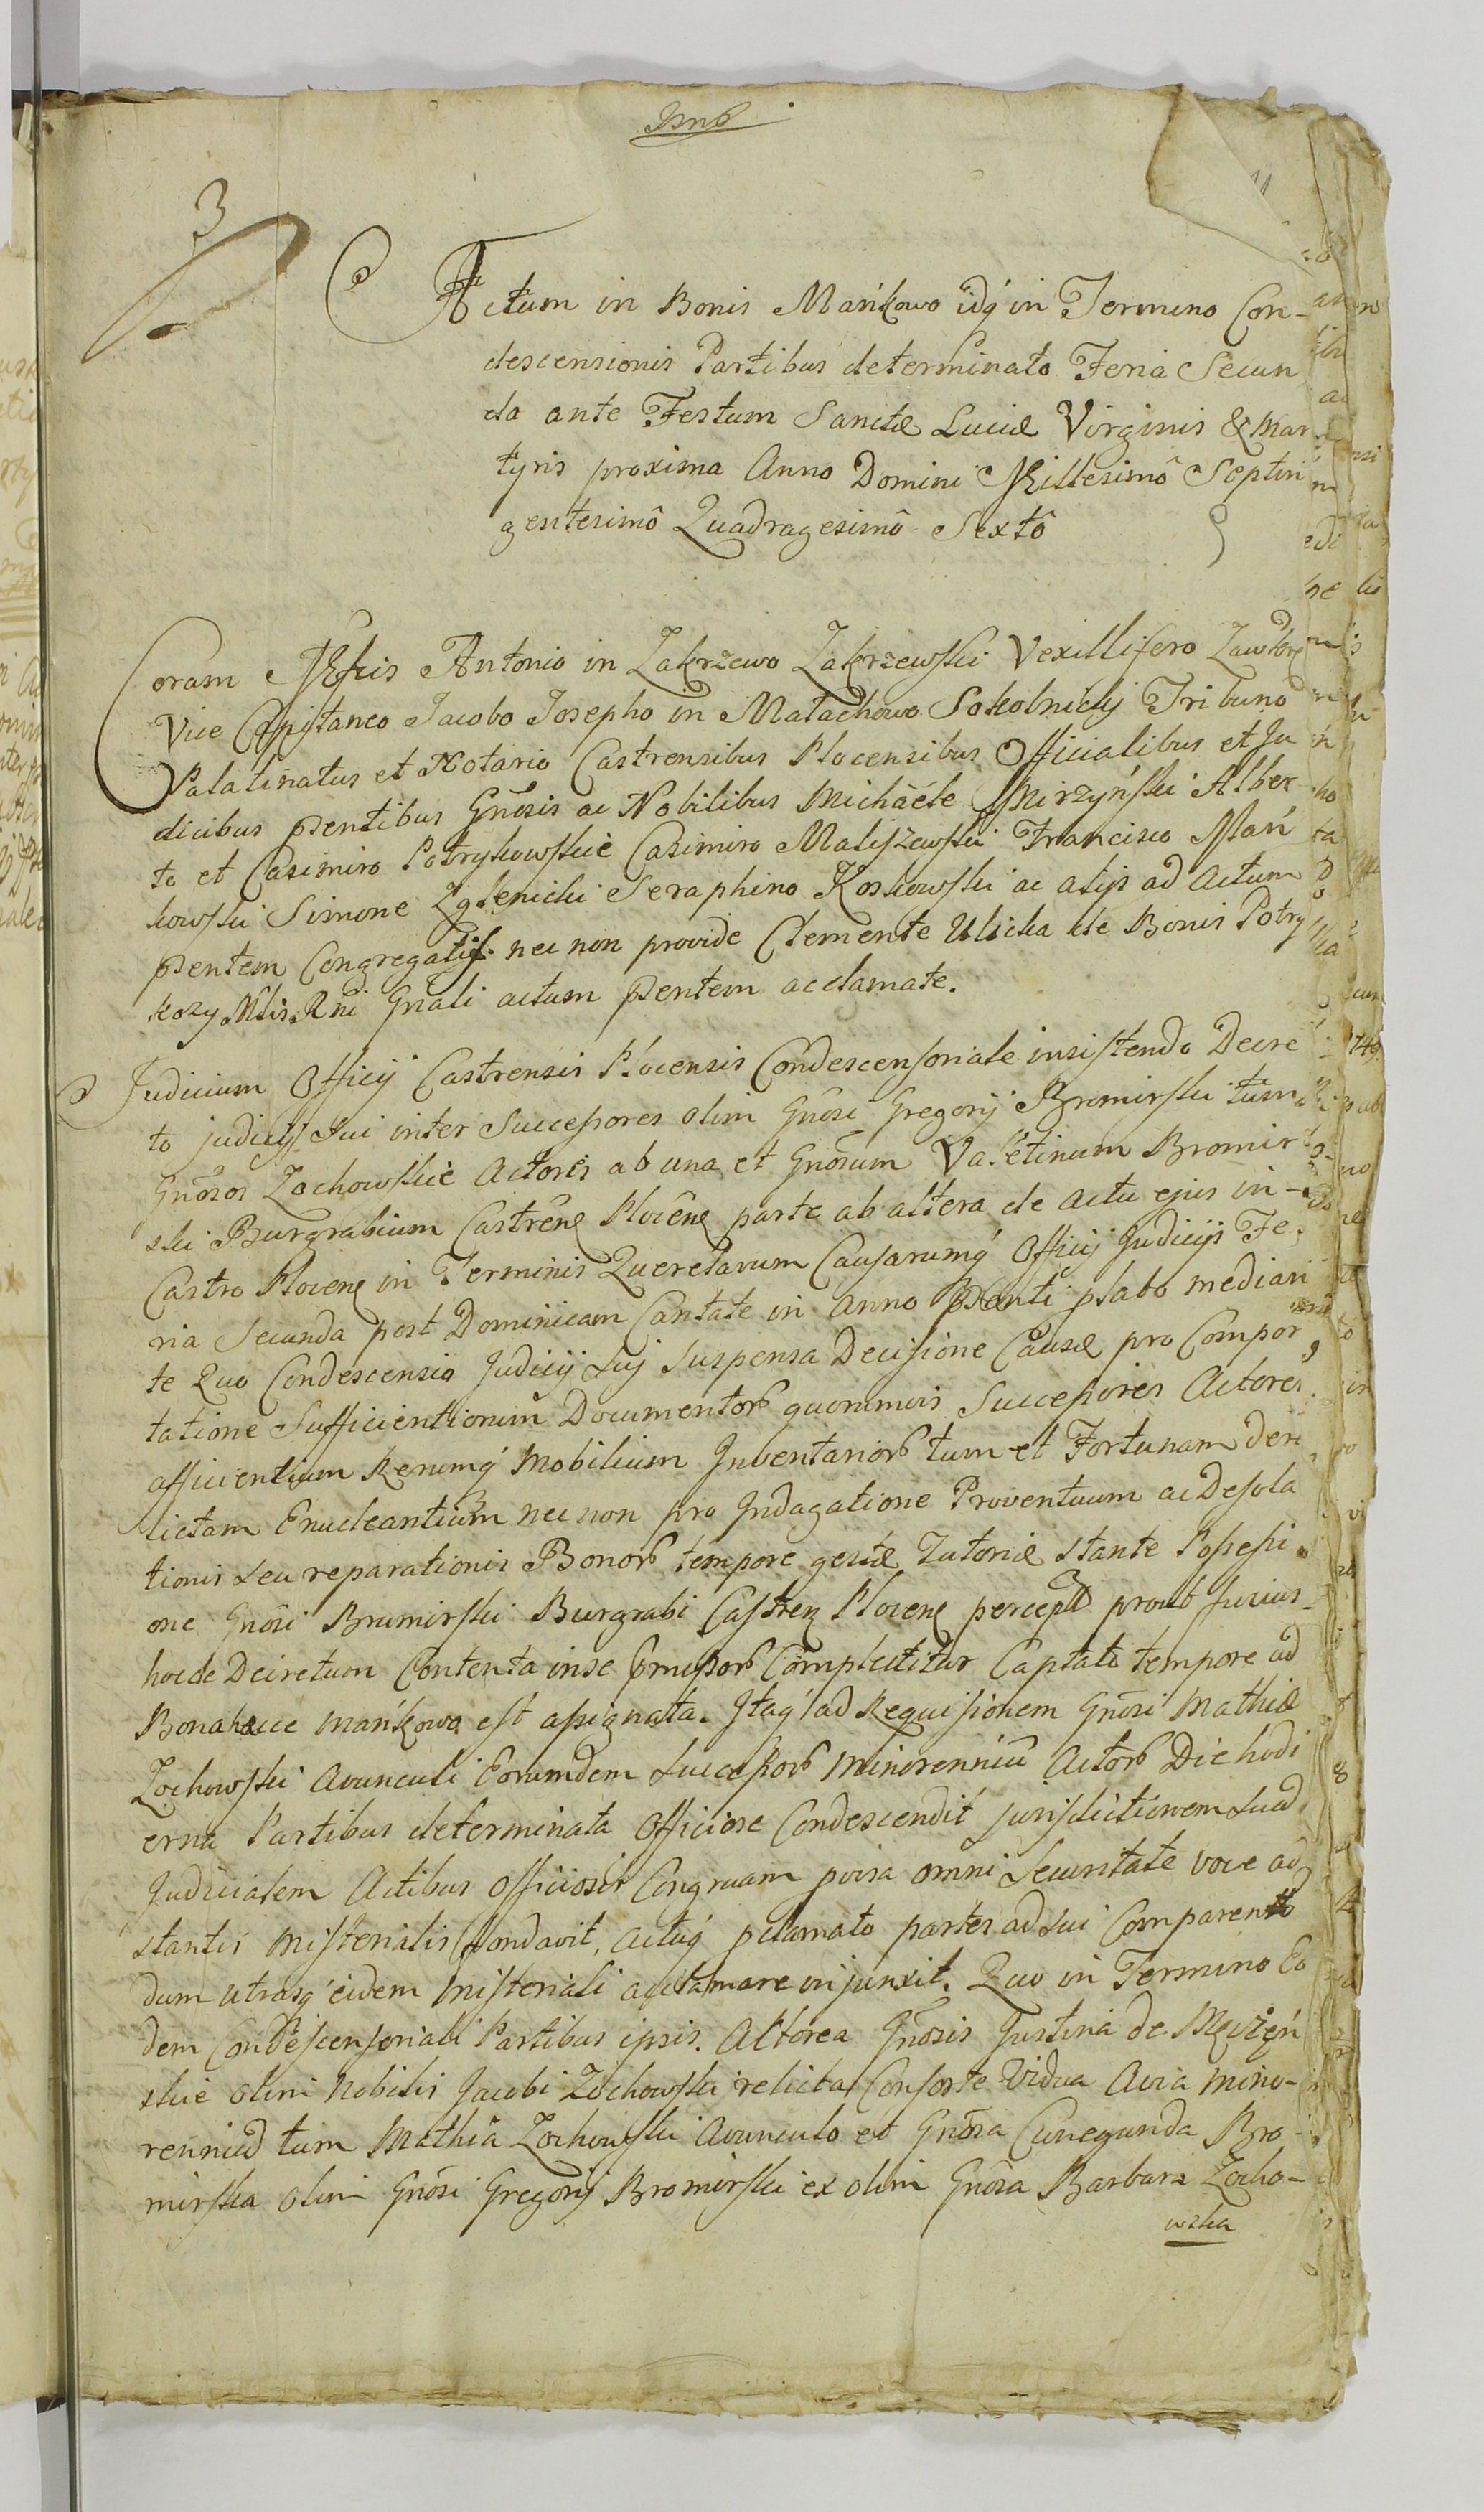 3
Actum in Bonis Mańkowo idq́ in Termino Con-
descensionis Partibus determinato Feria Secun
da ante Festum Sanctæ Luciæ Virginis & Mar
tyris proxima Anno Domini Millesimô Septin
gentesimô Quadragesimô Sextô
Coram Antonio in Zakrzewo Zakrzewski Vexillifero
Vice Capitaneo Jacobo Josepho in Małachowo Sokolnicky Tribuno
Palatinatus et Notario Castrensibus Plocensibus Officialibus et Ju
dicibus pntibus Gnôsis ac Nobilibus Michäele Mirzyński Alber
to et Casimiro Potrykowskie Casimiro Maliszewski Francisco Mań
kowski Simone Zglenicki Seraphino Kossowski ac alijs ad Actum
pntem Congregatis nec non provido Clemente Ulicka de Bonis Potry
kozy Mlis Rni Gnali actum pntem acclamate.
Judicium Officij Castrensis Plocensis Condescensoriale insistendo Decre
to judicij sui inter Successores olim Gnôsi Gregorij Bromirski tum
Gnôsos Zochowskie Actores ab una et Gnôsum Valētinum Bromir
ski Burgrabium Castrēne Plocēne parte ab altera de actu ejus in
Castro Plocene in Terminis Querelarum Causarumq́ Officij Judicijs Fe
ria Secunda post Dominicam Cantate in Anno pnti plato median
te Quo Condescensio Judicij Sui Suspensa Decisione Causæ pro Compor
tatione Sufficientiorum Documentor quorumvis Successores Actores
afficientium Rerumq́ Mobilium Inventarior tum et Fortunam dere
lictam Enucleantium nec non pro Indagatione Proventuum ac Desola
tionis seu reparationis Bonor tempore gestæ Tutoriæ stante Possessi
one Gnôsi Bromirski Burgrabi Castren Plocene percept prout fusius
hocce Decretum Contenta in se Complectitur Captato tempore ad
Bona hæcce Mańkowo est assignata. Itaq́ ad Requisionem Gnôsi Mathiæ
Zochowski Avunculi Eorumdem Successor Minorenniū Actor Die hodi
erna Partibus determinata Officiose Condescendit jurisdictionem suā
Judicialem Actibus Officiosis Congruam pvisa omni Securitate voce ad
stantis Misterialis fondavit, actuq́ pclamato partes ad sui Comparen
dum utrasq́ eidem Misteriali acclamare injunxit. Quo in Termino Eo
dem Condescensoriali Partibus ipsis. Actorea Gnôsis Justina de
skie olim Nobilis Jacobi Zochowski relicta Consorte Vidua Avia Mino-
renniū tum Mathia Zochowski Avunculo et Gnôsa Cunegunda Bro-
mirska olim Gnôsi Gregorij Bromirski ex olim Gnôsa Barbara Zocho-
wska